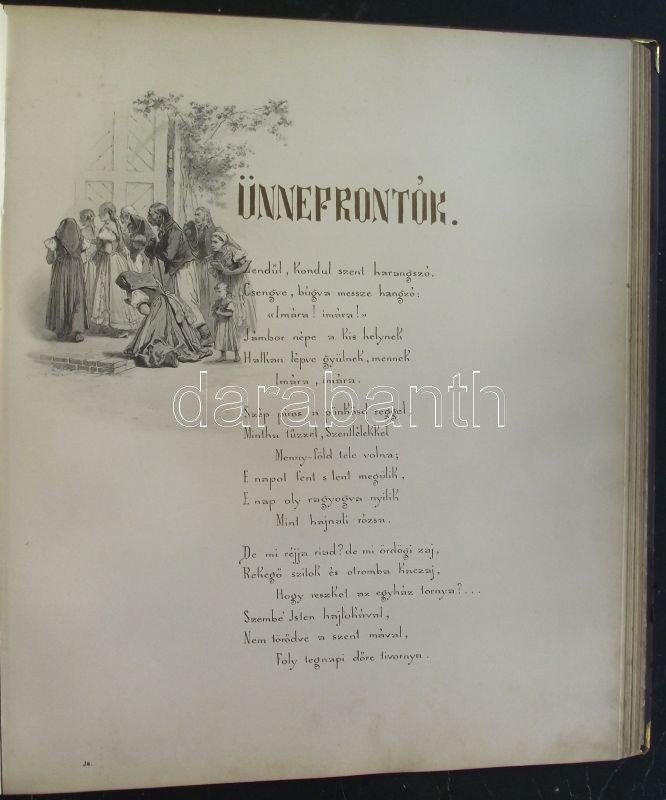 ÜNNEPRONTÓK.
Zendűl, kondul szent harangszó.
Csengve, búgva messze hangzó:
«Imára! imára!»
Jámbor népe a kis helynek
Halkan lépve gyűlnek, mennek
Imára, imára.
darabanth
Szép piros a pünkösd reggel,
Mintha tűzzel, Szentlélekkel
Menny-föld tele volna;
E napot fent s lent megülik,
E nap oly ragyogva nyílik
Mint hajnali rózsa.
De mi réjja riad? de mi ördögi zaj,
Rekegő szitok és otromba kaczaj,
Hogy reszket az egyház tornya?...
Szembe' Isten hajlokával,
Nem törődve a szent mával,
Foly tegnapi dőre tivornya.